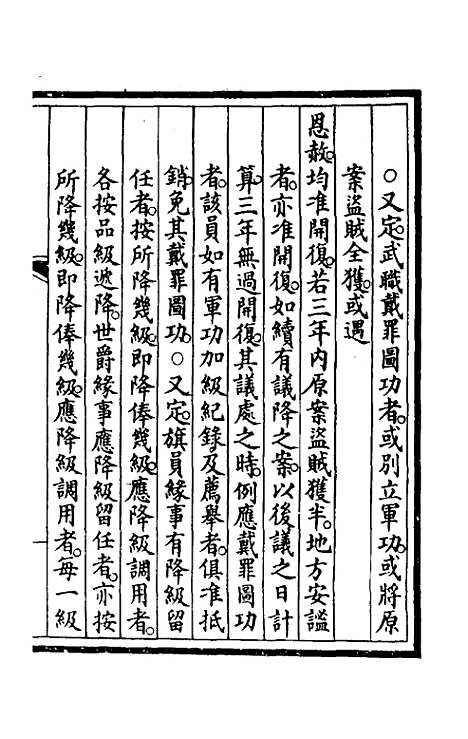 ○又定。武職戴罪圖功者。或別立軍功。或將原
案盜賊全獲。或遇
恩赦。均准開復。若三年內原案盜賊獲半。地方安謐
者。亦准開復。如續有議降之案。以後議之日計
算。三年無過開復。其議處之時。例應戴罪圖功
者。該員如有軍功加級紀錄。及薦舉者。俱准抵
銷。免其戴罪圖功。○又定。旗員緣事有降級留
任者。按所降幾級。即降俸幾級。應降級調用者。
各按品級遞降。世爵緣事應降級留任者。亦按
所降幾級。即降俸幾級。應降級調用者。每一級